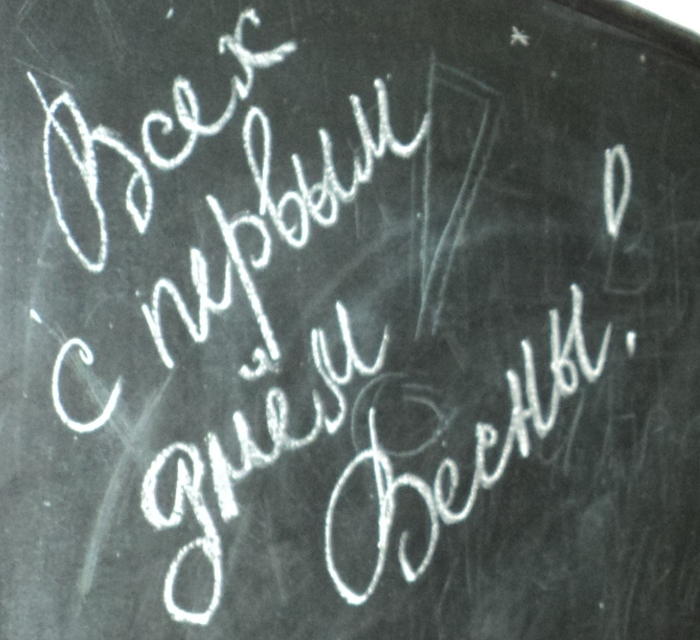 Всех
с первым
днём
Весны!